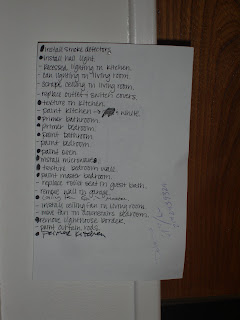 install smoke detectors
install hall light
- recessed lighting in kitchen
- can lighting in living room
- scrape ceiling in living room
- replace outlet + switch covers
texture in kitchen
- paint kitchen → + white
primer bathroom
primer bedroom
paint bathroom
paint bedroom
paint trim
install microwave
texture bedroom walls
paint master bedroom
- replace toilet seat in guest bath
- remove nail in garage
- install ceiling fan in living room
- move fan in bedroom
remove lighthouse border
- paint curtain rods
primer kitchen